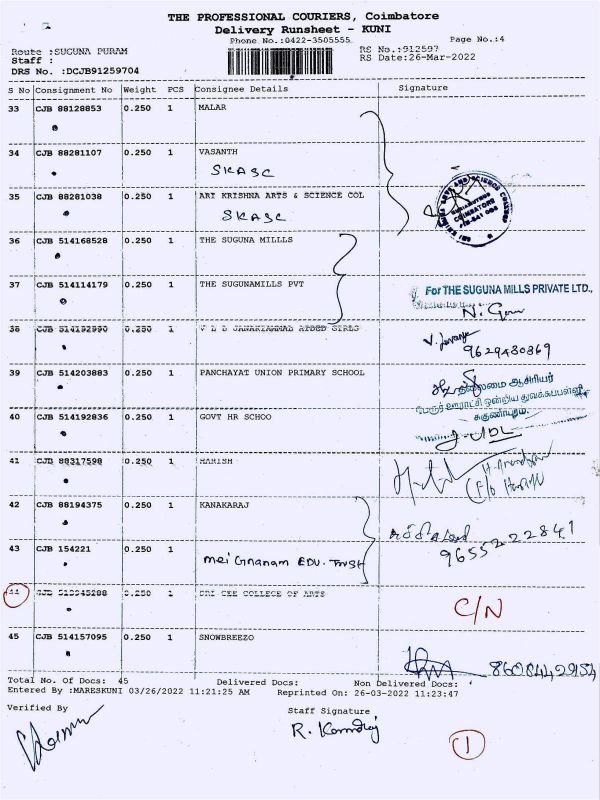 THE PROFESSIONAL COURIERS, Coimbatore
Delivery Runsheet - KUNI
Phone No.:0422-3505555 Page No.:4
Route :SUGUNA PURAM RS No.:912597
Staff : RS Date:26-Mar-2022
DRS No. :DCJB91259704
S No Consignment No Weight PCS Consignee Details Signature
33 CJB 88128853 0.250 1 MALAR
34 CJB 88281107 0.250 1 VASANTH
SKASC
35 CJB 88281038 0.250 1 ARI KRISHNA ARTS & SCIENCE COL
SKASC
COIMBATORE
36 CJB 514168528 0.250 1 THE SUGUNA MILLLS
37 CJB 514114179 0.250 1 THE SUGUNAMILLS PVT
For THE SUGUNA MILLS PRIVATE LTD.,
38 CJB 514192990 0.250 1 GIRLS
9629430369
39 CJB 514203883 0.250 1 PANCHAYAT UNION PRIMARY SCHOOL
தலைமை ஆசிரியர்
40 CJB 514192836 0.250 1 GOVT HR SCHOO
41 CJB 88317598 0.250 1 HARISH
42 CJB 88194375 0.250 1 KANAKARAJ
9655222841
43 CJB 154221 0.250 1 mei Gnanam EDU. Trust
44 0.250 1 SRI CEE COLLEGE OF ARTS
C/N
45 CJB 514157095 0.250 1 SNOWBREEZO
Total No. Of Docs: 45 Delivered Docs: Non Delivered Docs:
Entered By :MARESKUNI 03/26/2022 11:21:25 AM Reprinted On: 26-03-2022 11:23:47
Verified By Staff Signature
1